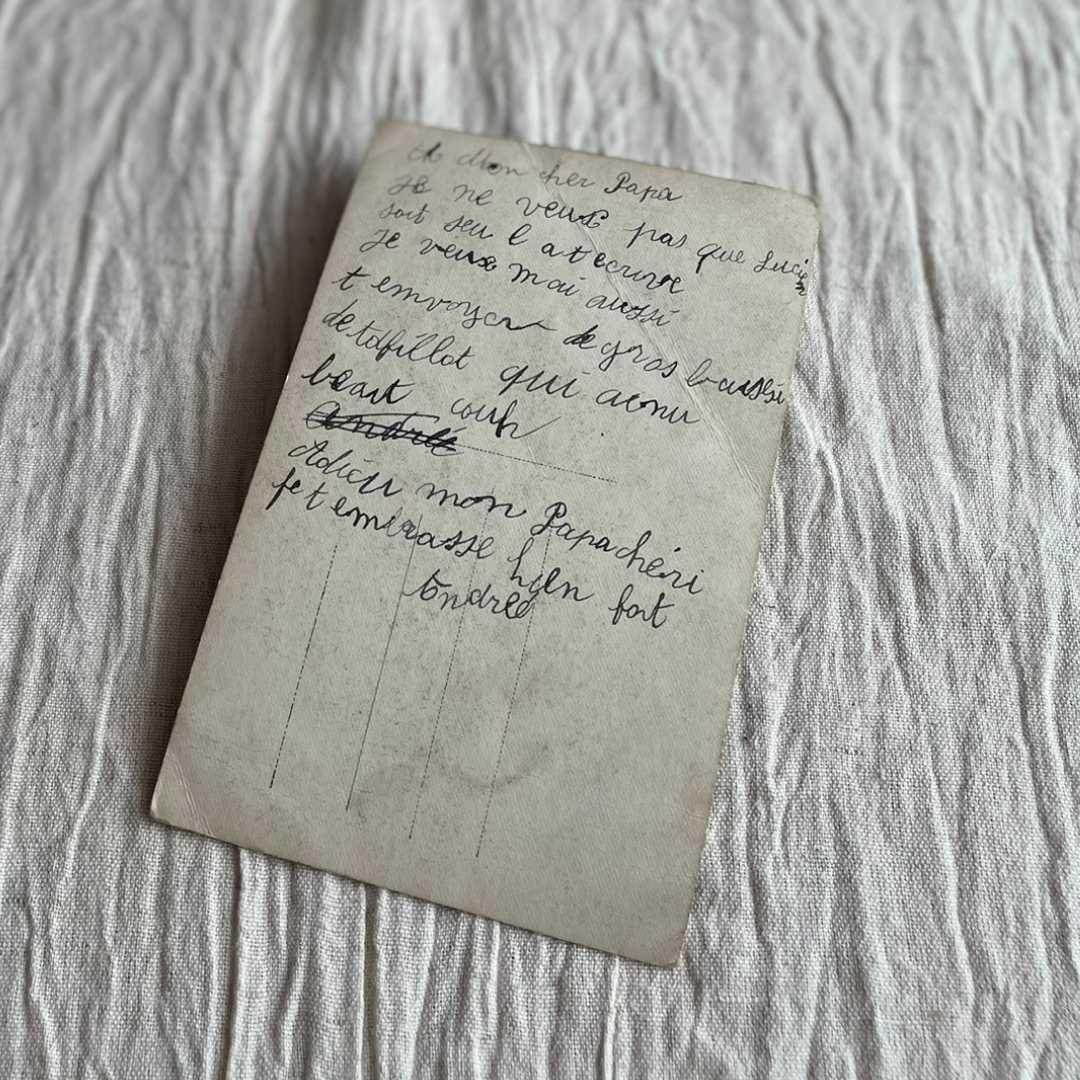 Mon cher Papa
Je ne veux pas que Lucien
soit seu l a t ecrire
Je veux moi aussi
t envoyer de gros baissi
de tafillot qui
beaut couh
André
Adieu mon Papa chéri
Je t embrasse bien fort
Andrée